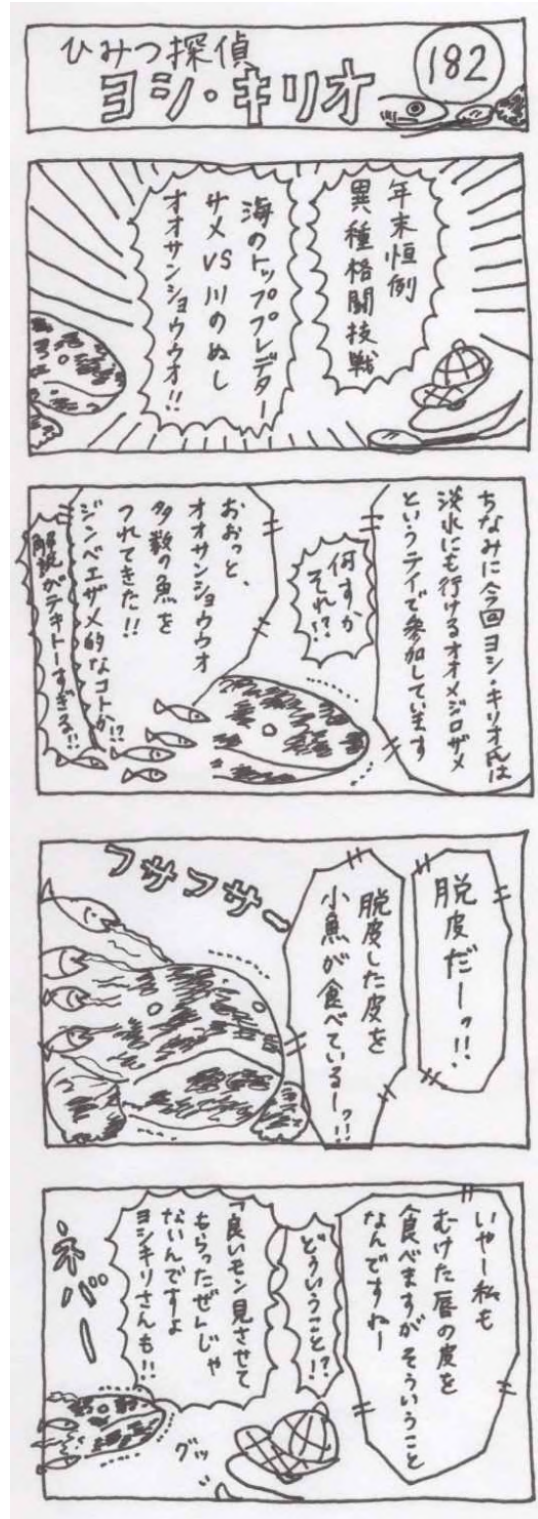 ひみつ探偵
ヨシ・キリオ
182
年末恒例
異種格闘技戦
海のトッププレデター
サメVS川のぬし
オオサンショウウオ!!
ちなみに今回ヨシ・キリオ氏は
淡水にも行けるオオメジロザメ
というテイで参加しています
何すか
それ!?
おおっと、
オオサンショウウオ
多数の魚を
つれてきた!!
ジンベエザメ的なコトか!?
解説がテキトーすぎる!!
脱皮だーッ!!
脱皮した皮を
小魚が食べているーッ!!
フサフサー
いやー私も
むけた唇の皮を
食べますがそういうこと
なんですねー
どういうこと!?
「良いモン見させて
もらったぜ」じゃ
ないんですよ
ヨシキリさんも!!
グッ
ネバー